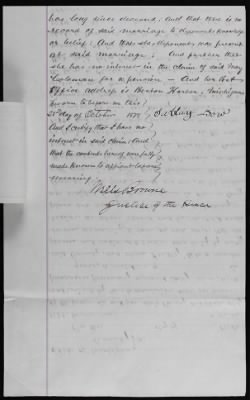 has long since deceased, and that there is no
record of said marriage to deponents knowledge
or belief; And that she deponent was present
at said marriage; And further that
she has no interest in the claim of said Mary
Coleman for a pension — And her Post
Office address is Benton Harbor, Michigan
Sworn to before me this
25 day of October
And I certify that I have no
interest in said claim, and
that the contents hereof were fully
made known to affiant before
swearing.
Justice of the Peace